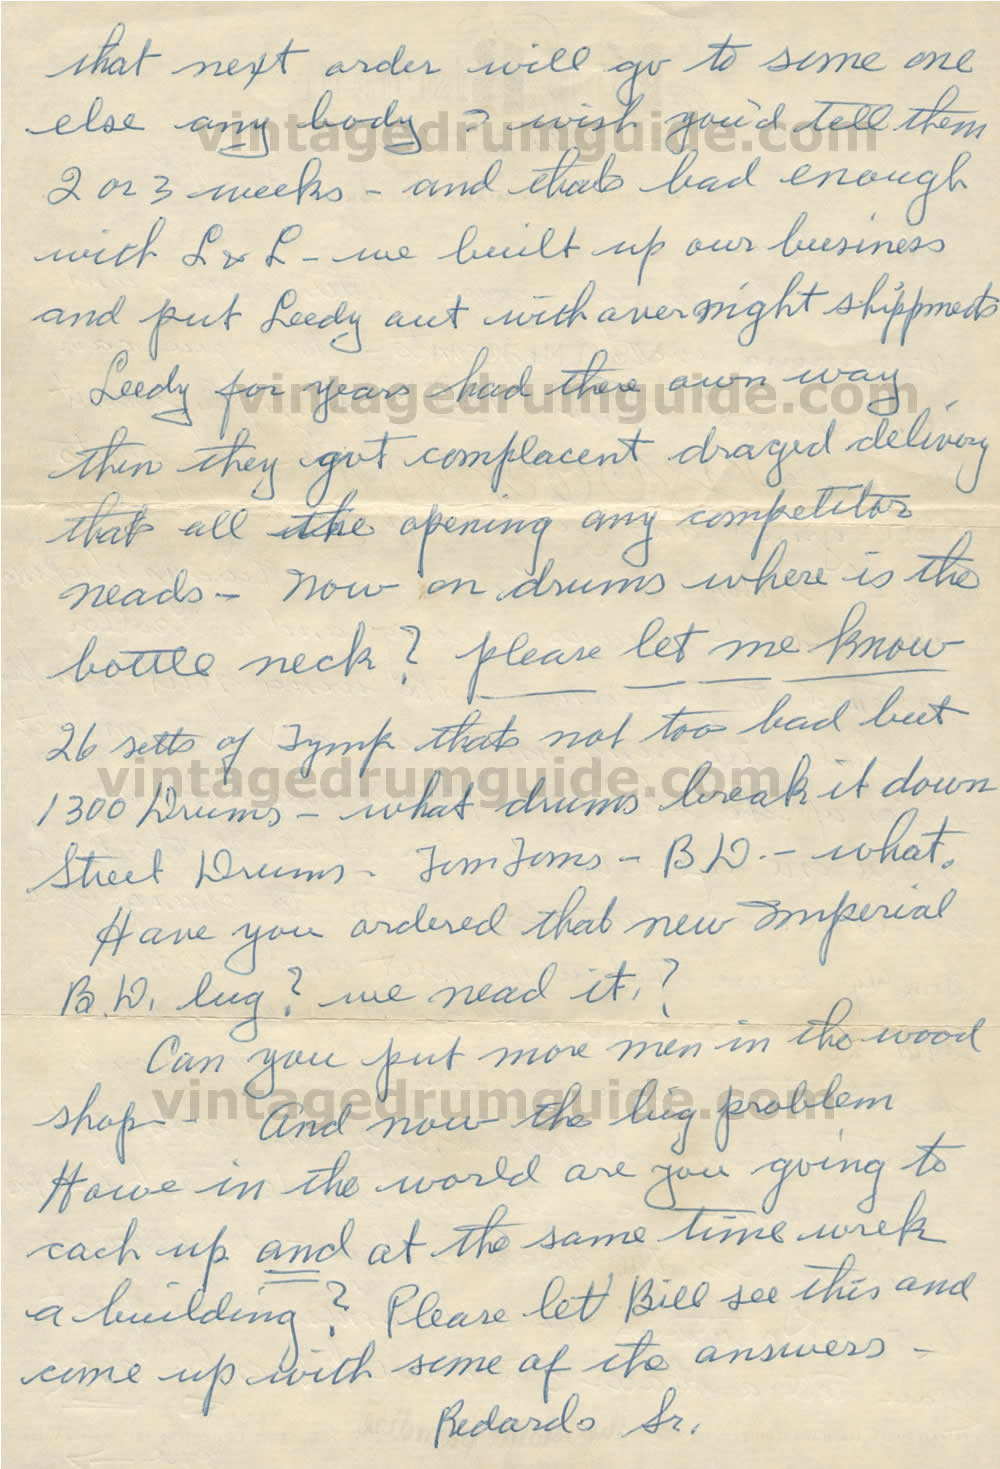 that next order will go to some one
else any body ? wish you'd tell them
vintagedrumguide.com
2 or 3 weeks - and thats bad enough
with L & L - we built up our business
and put Leedy out with over night shippments
Leedy for years had there own way
vintagedrumguide.com
then they got complacent draged delivery
thats all the opening any competitor
neads - Now on drums where is the
bottle neck? please let me know
26 setts of Tymp thats not too bad but
vintagedrumguide.com
1300 Drums - what drums break it down
Street Drums - Tom Toms - B D. - what.
Have you ordered that new Imperial
B.D. lug? we nead it.?
Can you put more men in the wood
vintagedrumguide.com
shop - And now the big problem
Howe in the world are you going to
cach up and at the same time wrek
a building? Please let Bill see this and
come up with some of the answers -
Sr.